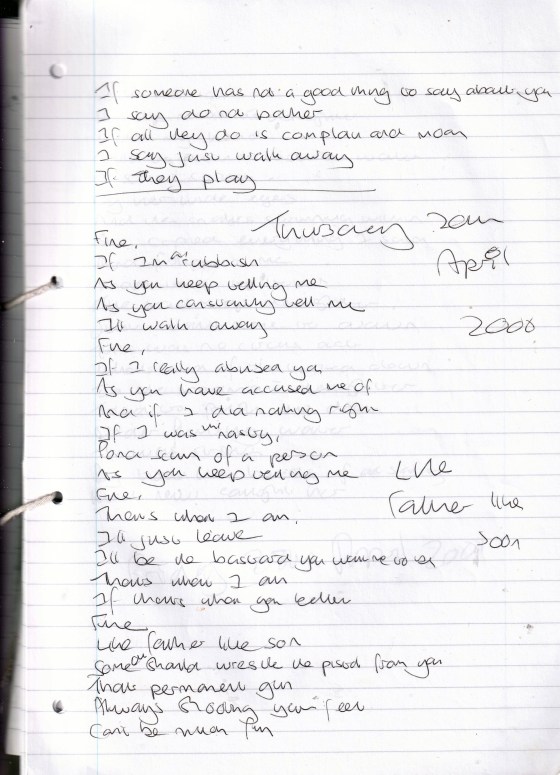 If someone has not a good thing to say about you
I say do not bother
If all they do is complain and moan
I say just walk away
If they play
Thursday 20th
April
2000
Fine,
If I'm all rubbish
As you keep telling me
As you constantly tell me
I'll walk away
Fine,
If I really abused you
As you have accused me of
And if I did nothing right
If I was nasty,
scum of a person
As you keep telling me
Like
Father like
Soon
Fine,
Thats what I am,
I'll just leave
I'll be the bastard you want me to be
Thats what I am
If thats what you
Fine
Like father like son
Someone should wrestle the pistol from you
That permanent gun
Always shooting your feet
Cant be much fun